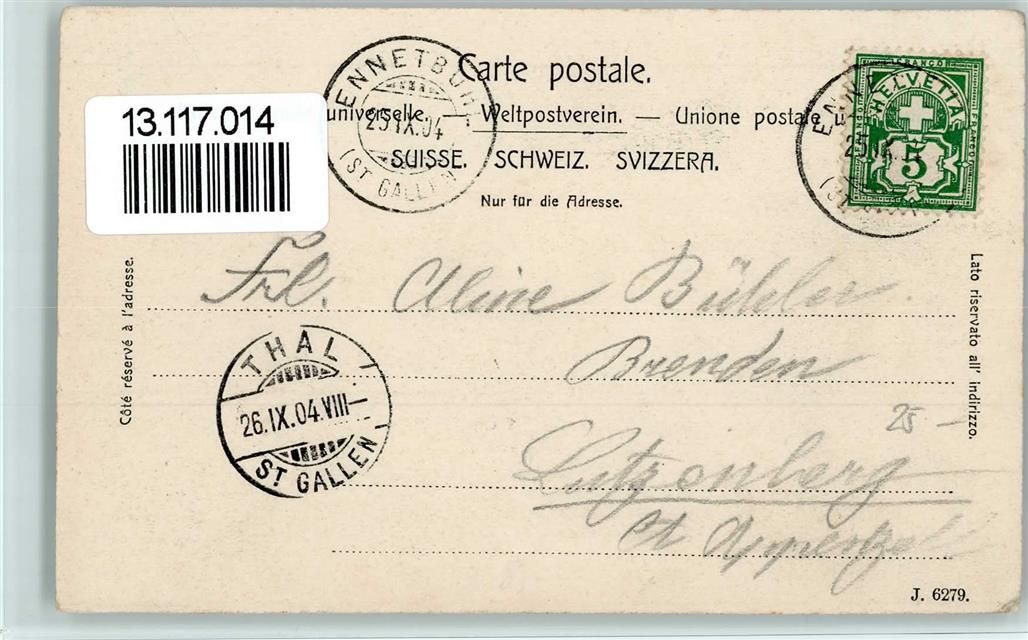 Carte postale.
universelle. — Weltpostverein. — Unione postale u
SUISSE. SCHWEIZ. SVIZZERA.
Nur für die Adresse.
13.117.014
ENNETBÜH
25 IX.04
(ST GALLEN)
ENN
25.IX.
FRANCO
HELVETIA
5
Côté réservé à l'adresse.
Lato riservato all' indirizzo.
Frl. Aline Bühler.
Brenden
Lutzenberg
Ct Appenzel
25 —
THAL
26.IX.04.VIII—
ST GALLEN
J. 6279.